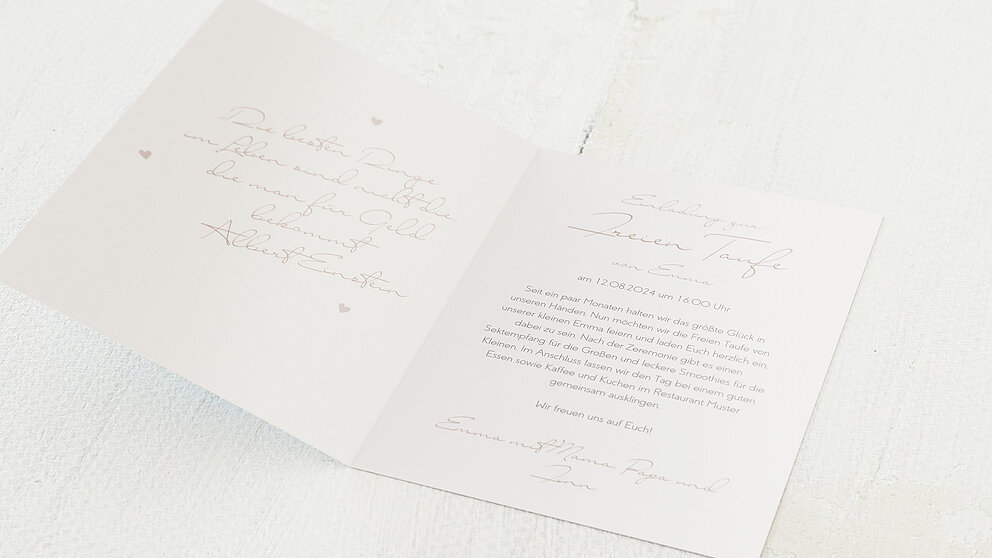 Die besten Dinge
im Leben sind nicht die
die man für Geld
bekommt
Albert Einstein
Einladung zur
Freien Taufe
von Emma
am 12.08.2024 um 16.00 Uhr
Seit ein paar Monaten halten wir das größte Glück in
unseren Händen. Nun möchten wir die Freien Taufe von
unserer kleinen Emma feiern und laden Euch herzlich ein,
dabei zu sein. Nach der Zeremonie gibt es einen
Sektempfang für die Großen und leckere Smoothies für die
Kleinen. Im Anschluss lassen wir den Tag bei einem guten
Essen sowie Kaffee und Kuchen im Restaurant Muster
gemeinsam ausklingen.
Wir freuen uns auf Euch!
Emma mit Mama Papa und
Finn